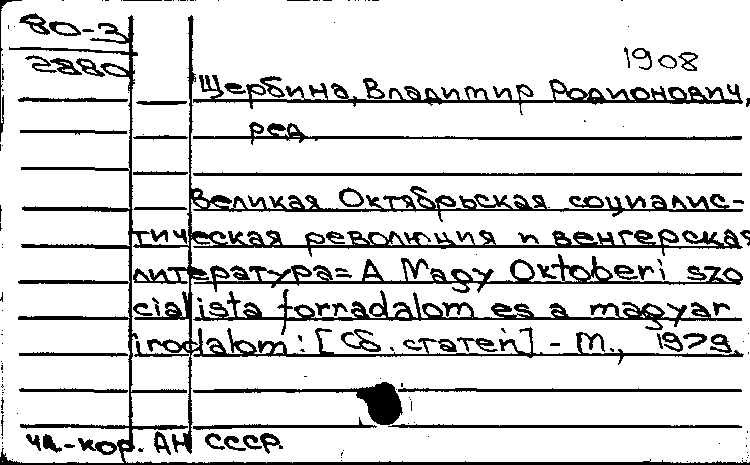 80-3
2880
1908
Щербина, Владимир Родионович,
ред.
Великая Октябрьская социалис-
тическая революция и венгерская
литература= А Magy Oktoberi szo
cialista forradalom es a magyar
irodalom: [Сб. статей]. - М., 1979.
чл.-кор. АН СССР.